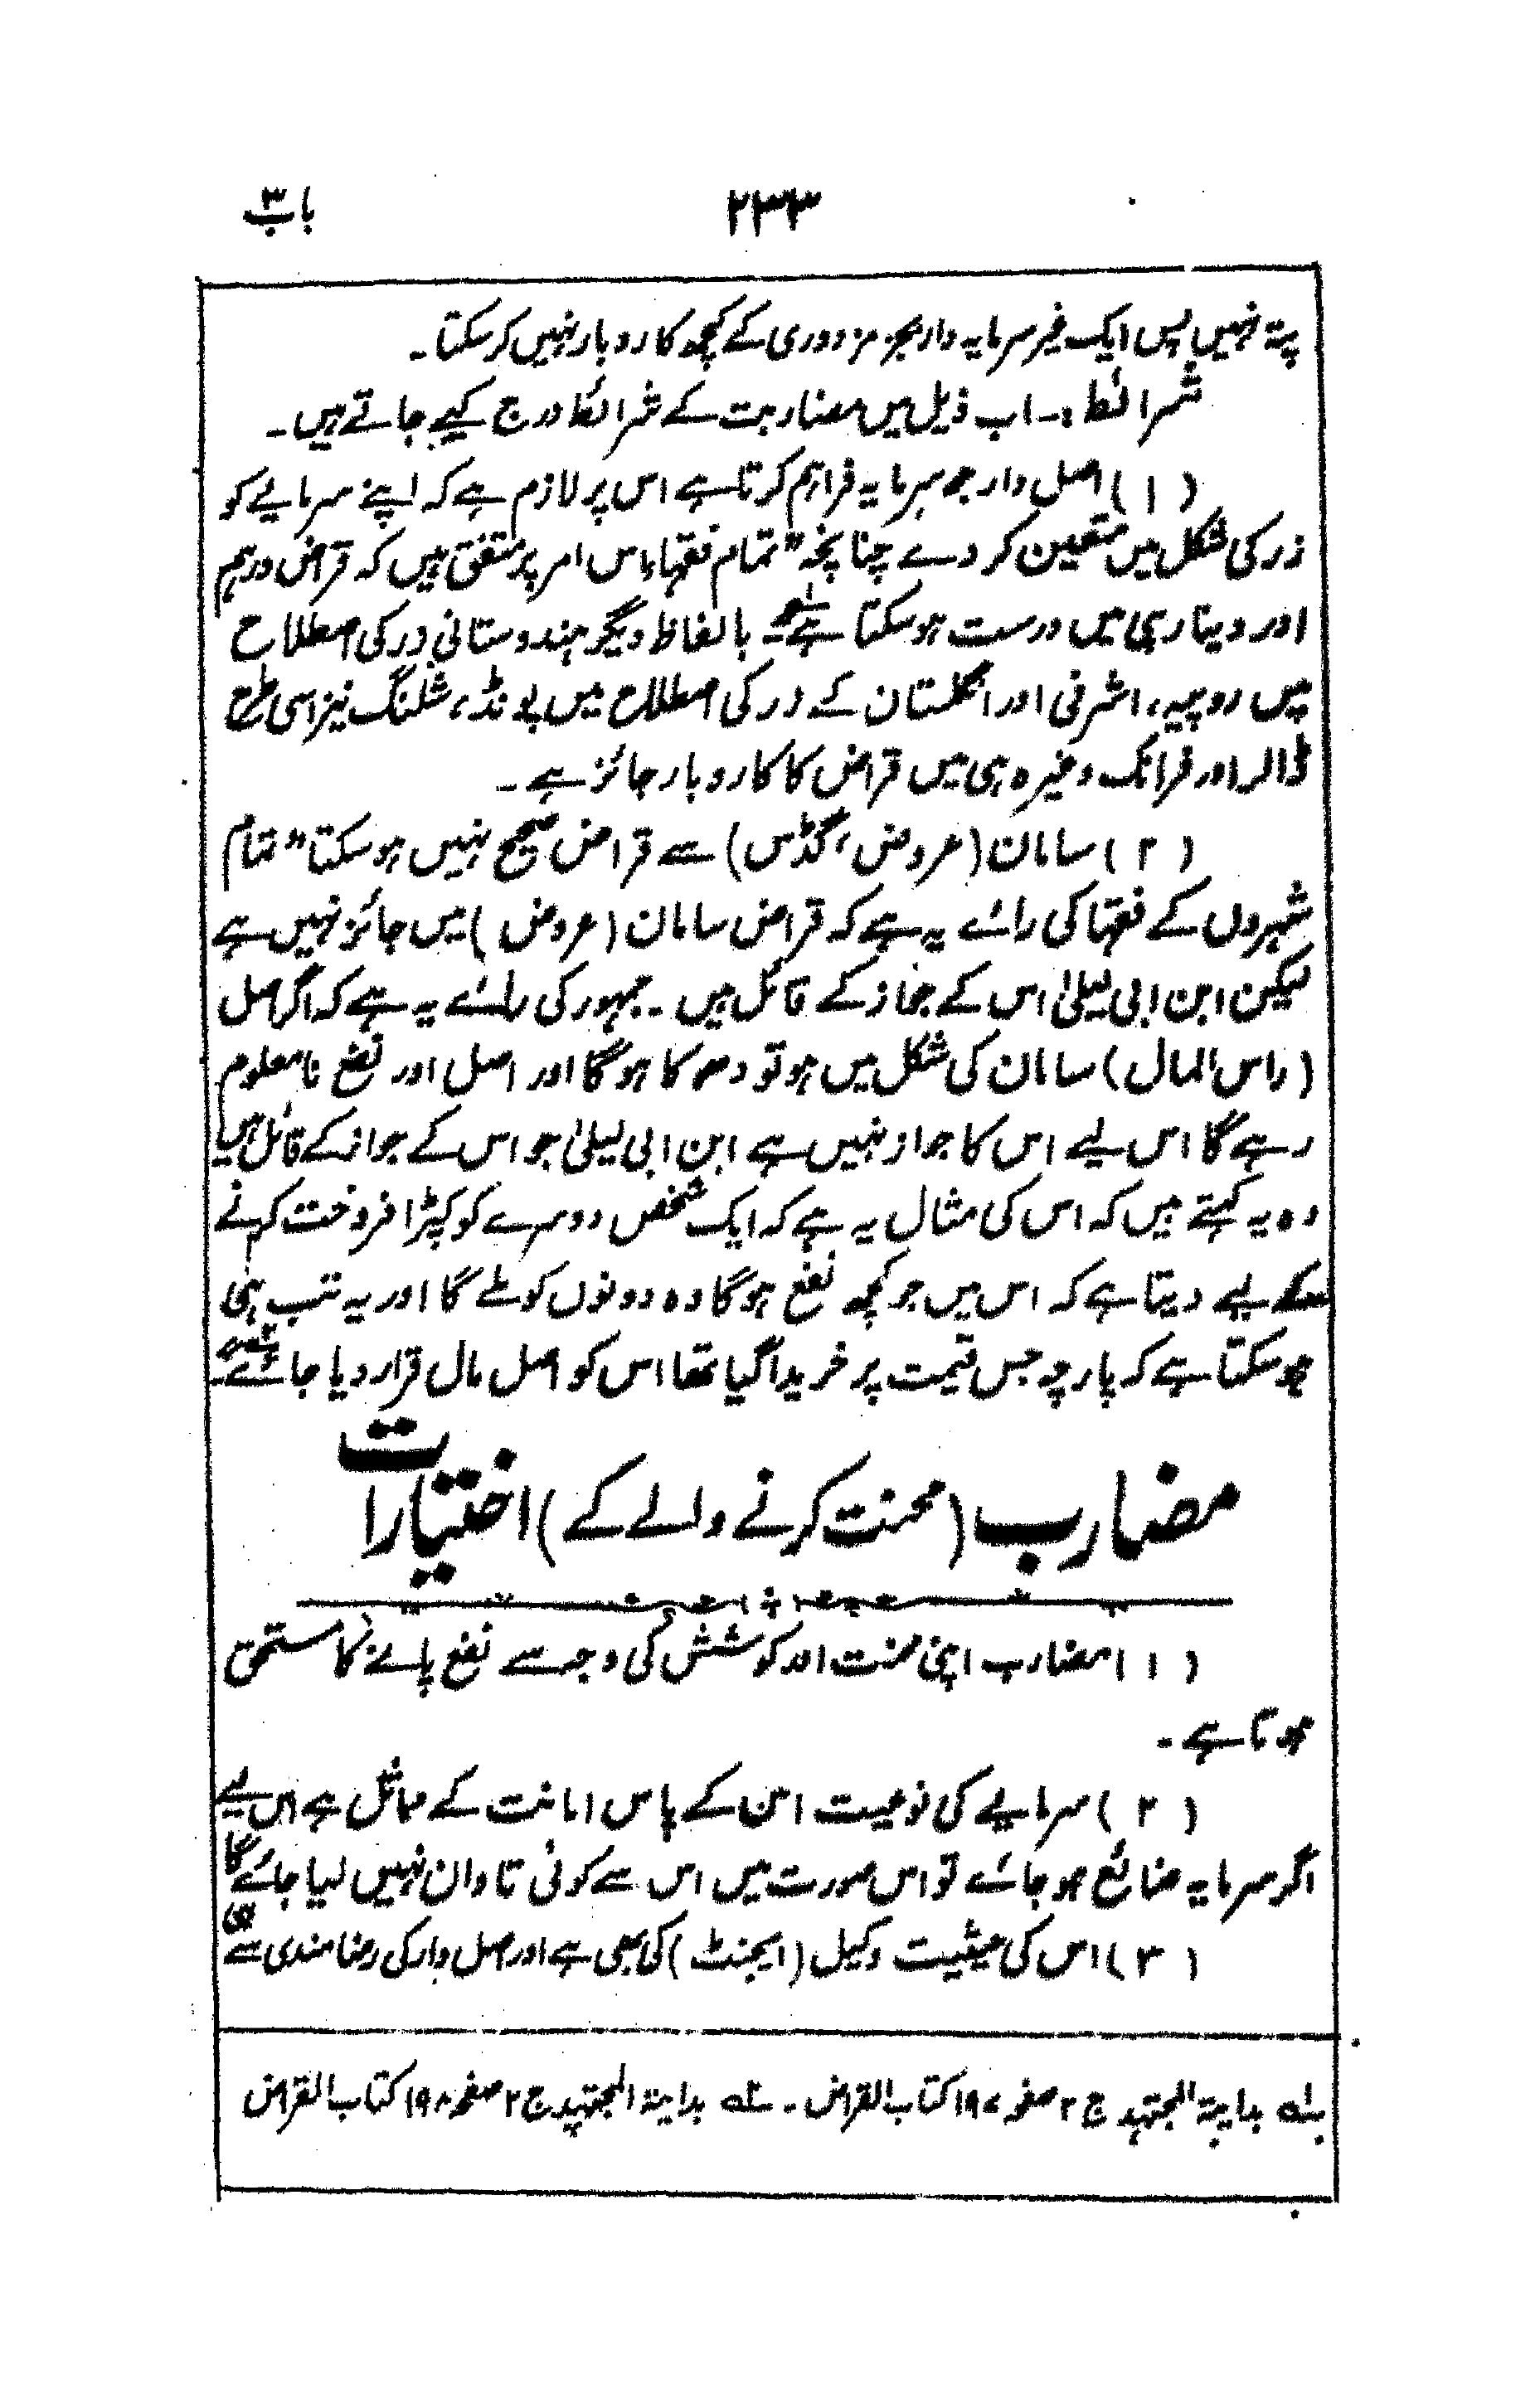 باب ۳
۲۳۳
پتہ نہیں پس ایک غیر سرمایہ دار بجز مزدوری کے کچھ کاروبار نہیں کرسکتا۔
شرائط :۔ اب ذیل میں مضاربت کے شرائط درج کیے جاتے ہیں۔
(۱) اصل دار جو سرمایہ فراہم کرتا ہے اس پر لازم ہے کہ اپنے سرمایے کو
زر کی شکل میں متعین کردے چنانچہ "تمام فقہاء اس امر پر متفق ہیں کہ قراض درہم
اور دینار ہی میں درست ہوسکتا ہے"۱؎۔ بالفاظ دیگر ہندوستانی زر کی اصطلاح
میں روپیہ، اشرفی اور انگلستان کے زر کی اصطلاح میں پونڈ، شلنگ نیز اسی طرح
ڈالر اور فرانک وغیرہ ہی میں قراض کا کاروبار جائز ہے۔
(۲) سامان (عروض، گڈس) سے قراض صحیح نہیں ہوسکتا "تمام
شہروں کے فقہا کی رائے یہ ہے کہ قراض سامان (عروض) میں جائز نہیں ہے
لیکن ابن ابی لیلیٰ اس کے جواز کے قائل ہیں۔ جمہور کی رائے یہ ہے کہ اگر اصل
(راس المال) سامان کی شکل میں ہو تو دھوکا ہوگا اور اصل اور نفع نامعلوم
رہے گا اس لیے اس کا جواز نہیں ہے ابن ابی لیلیٰ جو اس کے جواز کے قائل ہیں
وہ یہ کہتے ہیں کہ اس کی مثال یہ ہے کہ ایک شخص دوسرے کو کپڑا فروخت کرنے
کے لیے دیتا ہے کہ اس میں جو کچھ نفع ہوگا وہ دونوں کو ملے گا اور یہ تب ہی
ہوسکتا ہے کہ پارچہ جس قیمت پر خریدا گیا تھا اس کو اصل مال قرار دیا جائے"۲؎۔
مضارب (محنت کرنے والے کے) اختیارات
(۱) مضارب اپنی محنت اور کوشش کی وجہ سے نفع پانے کا مستحق
ہوتا ہے۔
(۲) سرمایے کی نوعیت اس کے پاس امانت کے مماثل ہے اس لیے
اگر سرمایہ ضائع ہوجائے تو اس صورت میں اس سے کوئی تاوان نہیں لیا جائے گا
(۳) اس کی حیثیت وکیل (ایجنٹ) کی بھی ہے اور اصل دار کی رضامندی سے ہی
۱؎ بدایۃ المجتہد ج ۲ صفحہ ۱۹۷ کتاب القراض۔ ۲؎ بدایۃ المجتہد ج ۲ صفحہ ۱۹۸ کتاب القراض